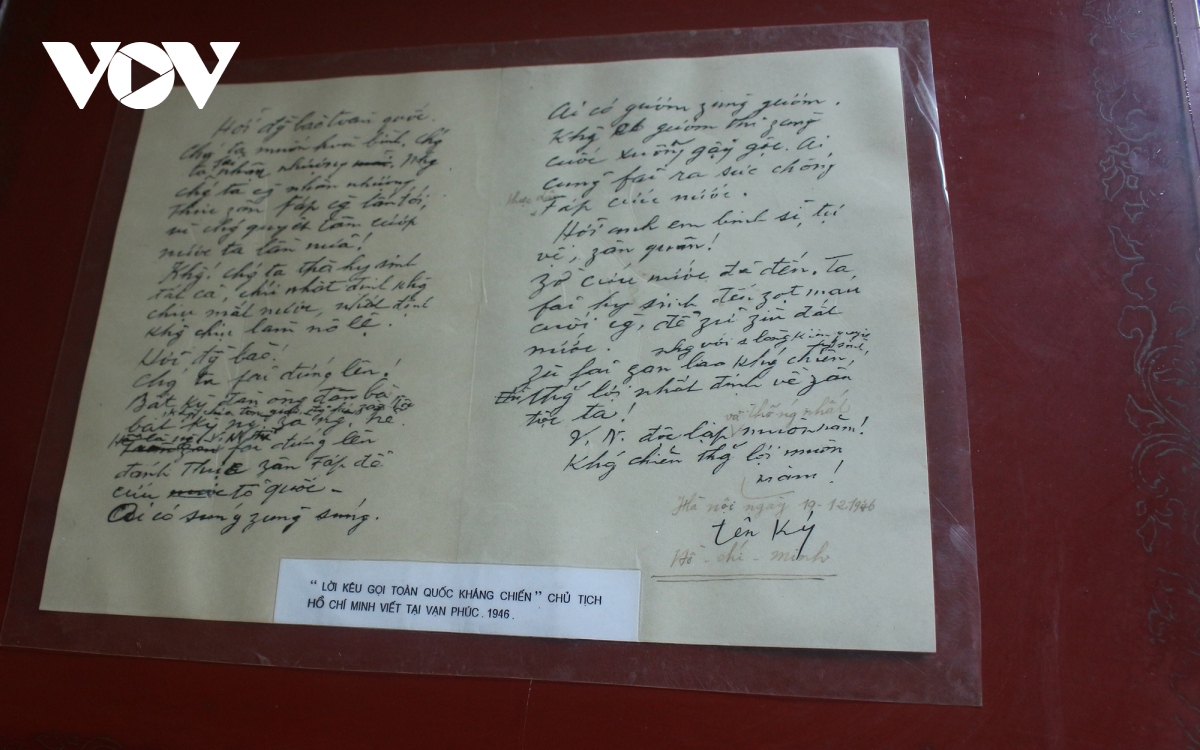 VOV
Hỡi đg̃ bào toàn quốc.
Chǵ ta muốn hoà bình, chǵ
ta fải nhân nhượng. Nhg
chǵ ta cg̀ nhân nhượng
thực zân Fáp cg̀ lấn tới,
vì chǵ quyết tâm cướp
nước ta lần nữa!
Khg! Chǵ ta thà hy sinh
tất cả, chứ nhất định khg
chịu mất nước, nhất định
khg chịu làm nô lệ.
Hỡi đg̀ bào!
Chǵ ta fải đứng lên!
Bất kỳ đàn ông đàn bà
bất kỳ ng` zà ng` trẻ.
fải đứng lên
đánh thực zân Fáp để
cứu tổ quốc -
Ai có súng zùng súng.
Ai có gươm zùng gươm.
Khg có gươm thì zùng
cuốc xuổng gậy gộc. Ai
cũng fải ra sức chống
Fáp cứu nước.
Hỡi anh em binh sĩ, tự
vệ, zân quân!
Zờ cứu nước đã đến. Ta
fải hy sinh đến zọt máu
cuối cg̀, để zữ zìn đất
nước.
Zù fải zan lao khág chiến,
nhg với 1 lòng kiên quyết
thǵ lợi nhất định về zân
tộc ta!
và thống nhất
V. N. độc lập muôn năm!
Khág chiến thǵ lợi muôn
năm!
Hà nội ngày 19-12-1946
tên Ký
Hồ - chí - minh
“ LỜI KÊU GỌI TOÀN QUỐC KHÁNG CHIẾN ” CHỦ TỊCH
HỒ CHÍ MINH VIẾT TẠI VẠN PHÚC . 1946 .